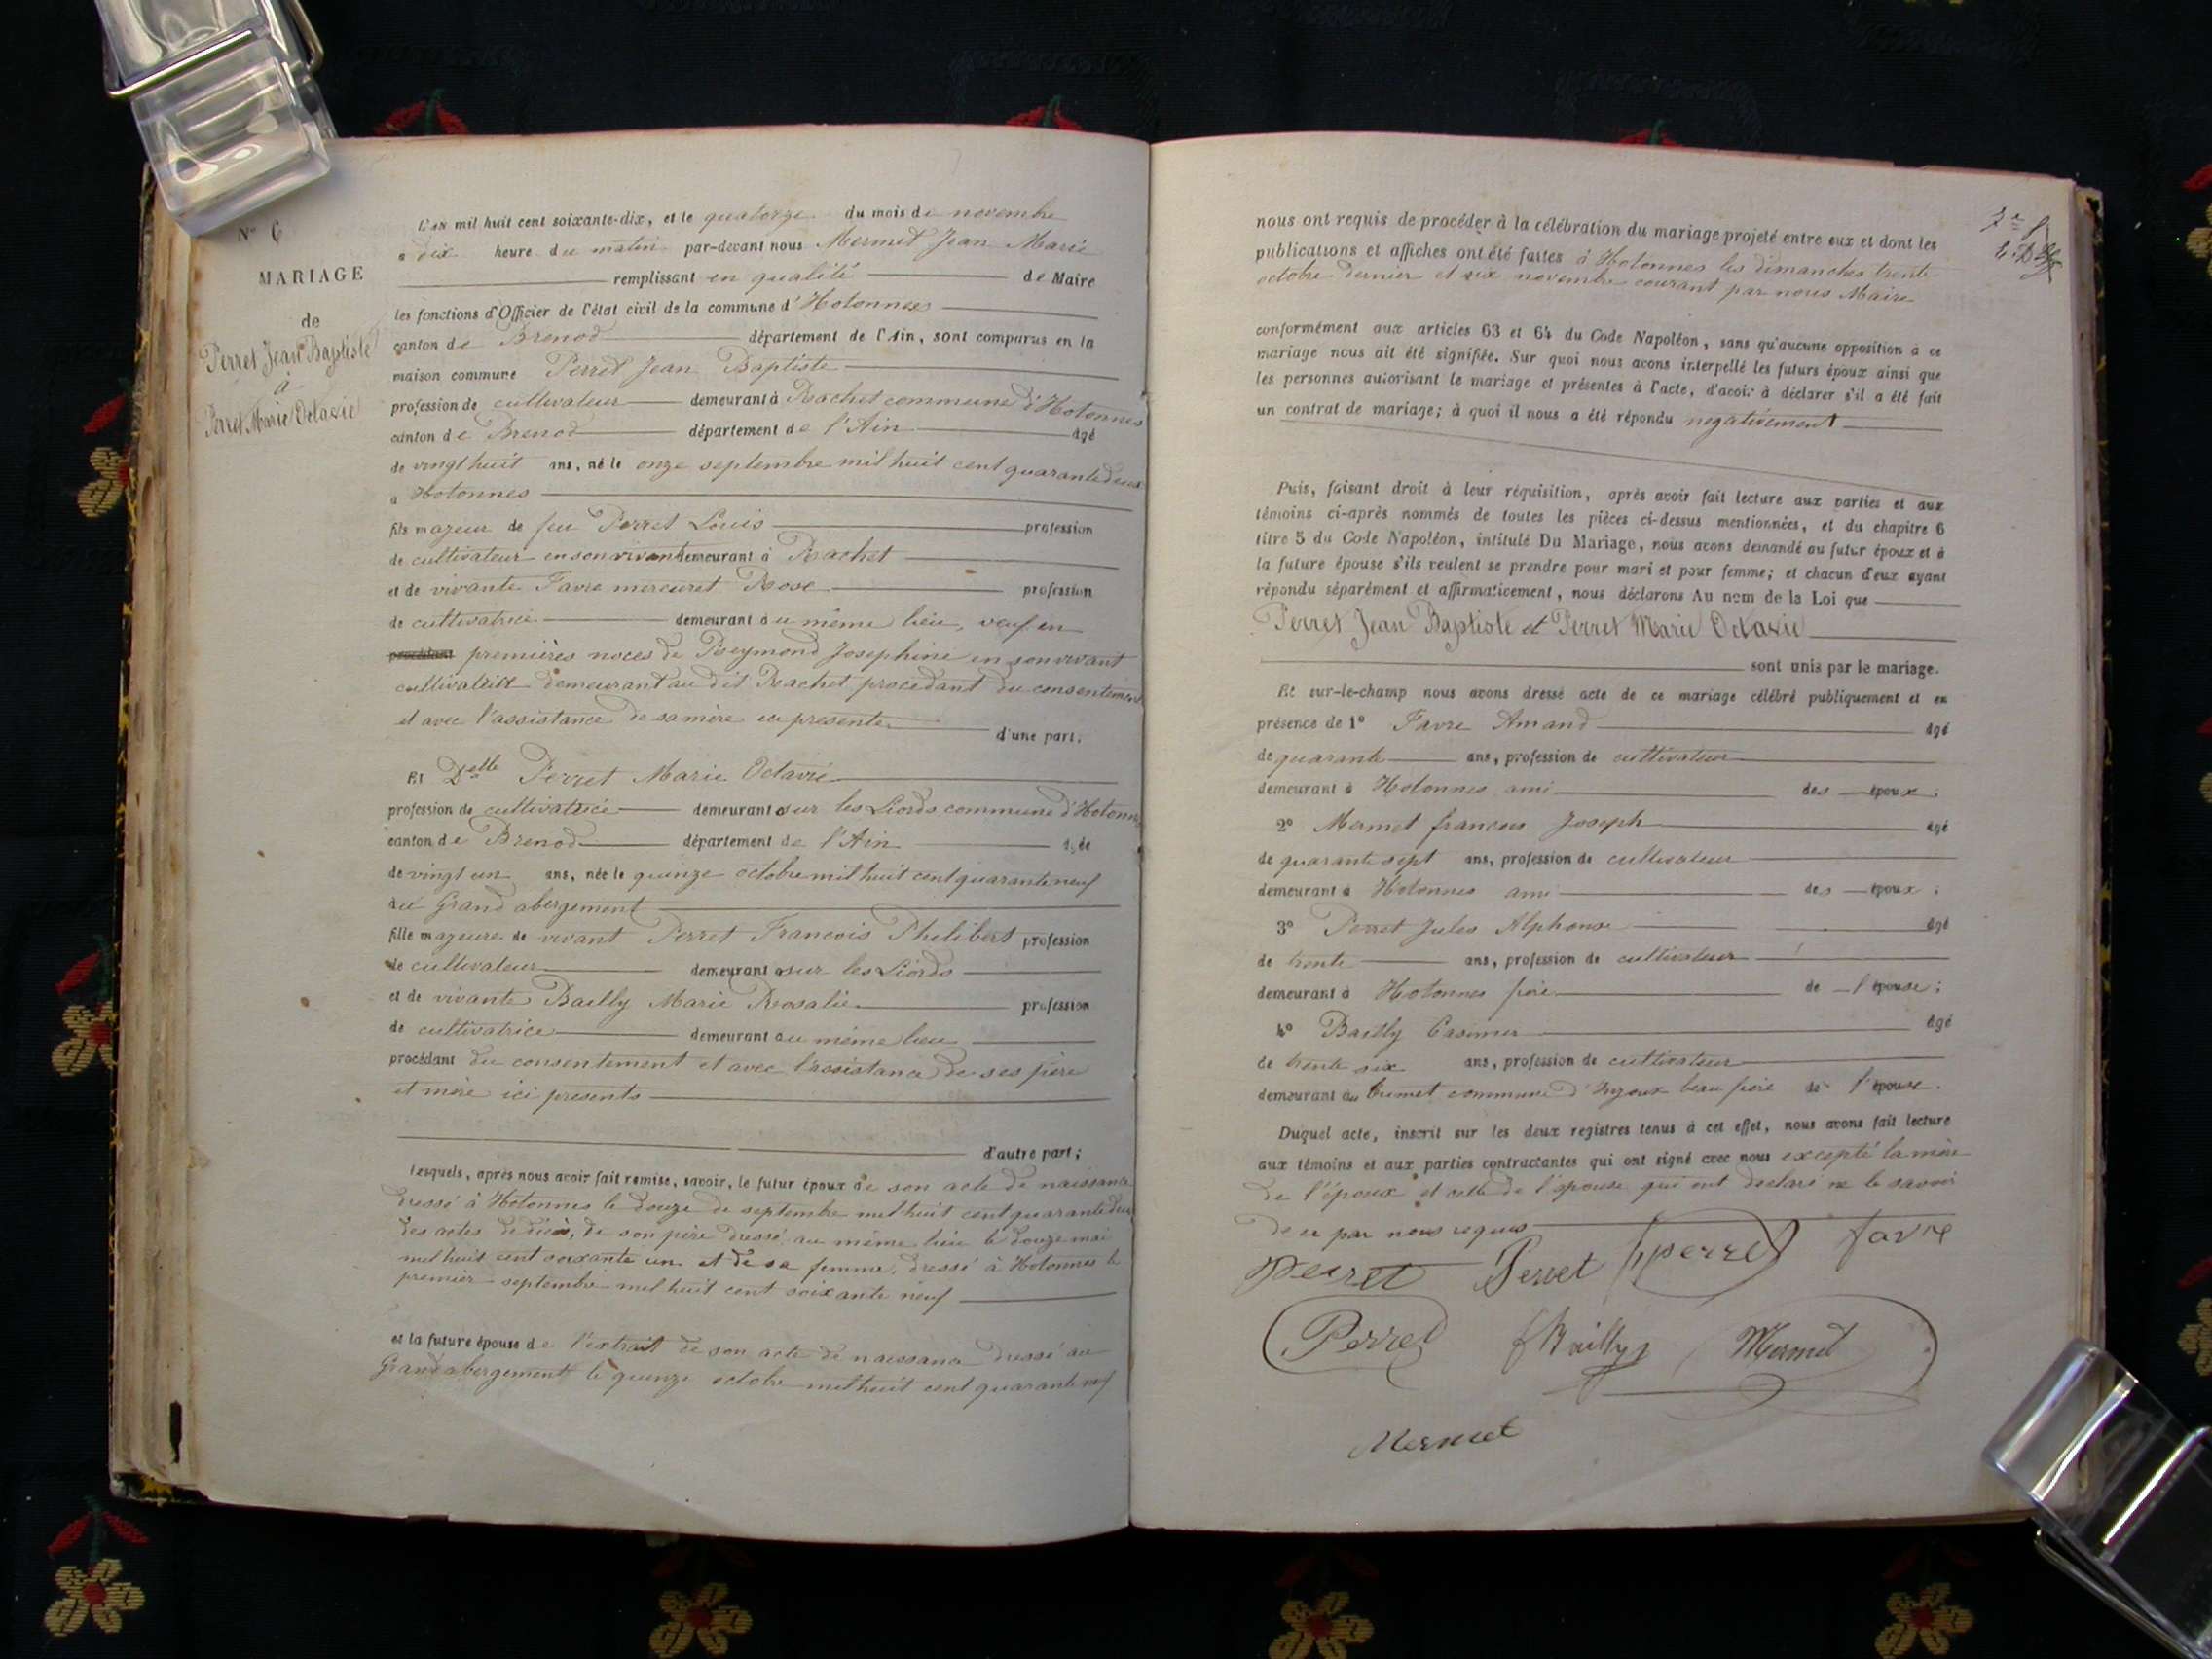 N° 6
MARIAGE
de
Perret Jean Baptiste
à
Perret Marie Octavie
L'an mil huit cent soixante-dix, et le quatorze du mois de novembre
à dix heure du matin par-devant nous Mermet Jean Marie
remplissant en qualité de Maire
les fonctions d'Officier de l'état civil de la commune d'Hotonnes
canton de Brenod département de l'Ain, sont comparus en la
maison commune Perret Jean Baptiste
profession de cultivateur demeurant à Rachet commune d'Hotonnes
canton de Brenod département de l'Ain âgé
de vingt huit ans, né le onze septembre mil huit cent quarante deux
à Hotonnes
fils majeur de feu Perret Louis profession
de cultivateur en son vivant demeurant à Rachet
et de vivante Favre mercuret Rose profession
de cultivatrice demeurant au même lieu, veuf en
procédant premières noces de Reymond Josephine en son vivant
cultivatrice demeurant au dit Rachet procédant du consentement
et avec l'assistance de sa mère ici presente
d'une part.
Et Delle Perret Marie Octavie
profession de cultivatrice demeurant sur les Liords commune d'Hotonnes
canton de Brenod département de l'Ain âgée
de vingt un ans, née le quinze octobre mil huit cent quarante neuf
au Grand abergement
fille majeure de vivant Perret Francois Philibert profession
de cultivateur demeurant sur les Liords
et de vivante Bailly Marie Rosalie profession
de cultivatrice demeurant au même lieu
procédant du consentement et avec l'assistance de ses père
et mère ici presents
d'autre part;
lesquels, après nous avoir fait remise, savoir, le futur époux de son acte de naissance
dressé à Hotonnes le douze de septembre mil huit cent quarante deux
des actes de décès, de son père dressé au même lieu le douze mai
mil huit cent soixante un et de sa femme, dressé à Hotonnes le
premier septembre mil huit cent soixante neuf
et la future épouse de l'extrait de son acte de naissance dressé au
Grand abergement le quinze octobre mil huit cent quarante neuf
nous ont requis de procéder à la célébration du mariage projeté entre eux et dont les
publications et affiches ont été faites à Hotonnes les dimanches trente
octobre dernier et six novembre courant par nous Maire
conformément aux articles 63 et 64 du Code Napoléon, sans qu'aucune opposition à ce
mariage nous ait été signifiée. Sur quoi nous avons interpellé les futurs époux ainsi que
les personnes autorisant le mariage et présentes à l'acte, d'avoir à déclarer s'il a été fait
un contrat de mariage; à quoi il nous a été répondu negativement
Puis, faisant droit à leur réquisition, après avoir fait lecture aux parties et aux
témoins ci-après nommés de toutes les pièces ci-dessus mentionnées, et du chapitre 6
titre 5 du Code Napoléon, intitulé Du Mariage, nous avons demandé au futur époux et à
la future épouse s'ils veulent se prendre pour mari et pour femme; et chacun d'eux ayant
répondu séparément et affirmativement, nous déclarons Au nom de la Loi que
Perret Jean Baptiste et Perret Marie Octavie
sont unis par le mariage.
Et sur-le-champ nous avons dressé acte de ce mariage célébré publiquement et en
présence de 1° Favre Amand âgé
de quarante ans, profession de cultivateur
demeurant à Hotonnes ami des époux;
2° Mermet francois Joseph âgé
de quarante sept ans, profession de cultivateur
demeurant à Hotonnes ami des époux;
3° Perret Jules Alphonse âgé
de trente ans, profession de cultivateur
demeurant à Hotonnes frère de l'épouse;
4° Bailly Casimir âgé
de trente six ans, profession de cultivateur
demeurant au commune d'Injoux beau frère de l'épouse.
Duquel acte, inscrit sur les deux registres tenus à cet effet, nous avons fait lecture
aux témoins et aux parties contractantes qui ont signé avec nous excepté la mère
de l'époux et celle de l'épouse qui ont declaré ne le savoir
de ce par nous requis
Perret Perret Perret favre
Perret Bailly Mermet
Mermet